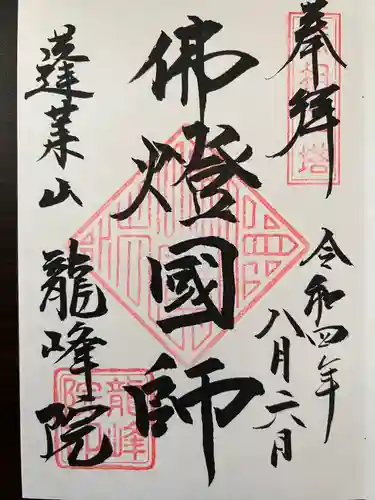 奉拝
令和四年
八月六日
佛燈國師
蓬莱山
龍峰院